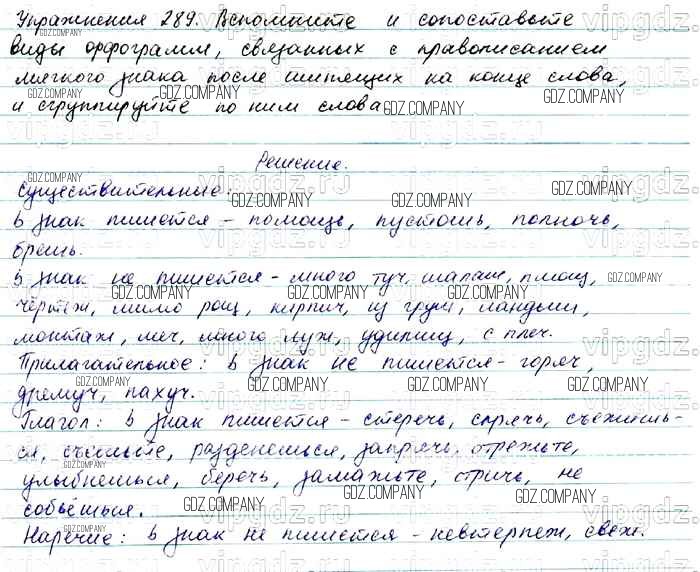 Упражнения 289. Вспомните и сопоставьте
виды орфограмм, связанных с правописанием
мягкого знака после шипящих на конце слова,
и сгруппируйте по ним слова
Решение.
Существительные:
ь знак пишется - помощь, пустошь, полночь,
брешь.
ь знак не пишется - много туч, шалаш, плющ,
чертёж, мимо рощ, кирпич, из груш, ландыш,
монтаж, меч, много луж, удилищ, с плеч.
Прилагательное: ь знак не пишется - горяч,
дремуч, пахуч.
Глагол: ь знак пишется - стеречь, спрячь, съежишь-
ся, съешьте, разденешься, запрячь, отрежьте,
улыбнешься, беречь, замажьте, стричь, не
собьёшься.
Наречие: ь знак не пишется - невтерпеж, свеж.
GDZ.COMPANY
vipgdz.ru